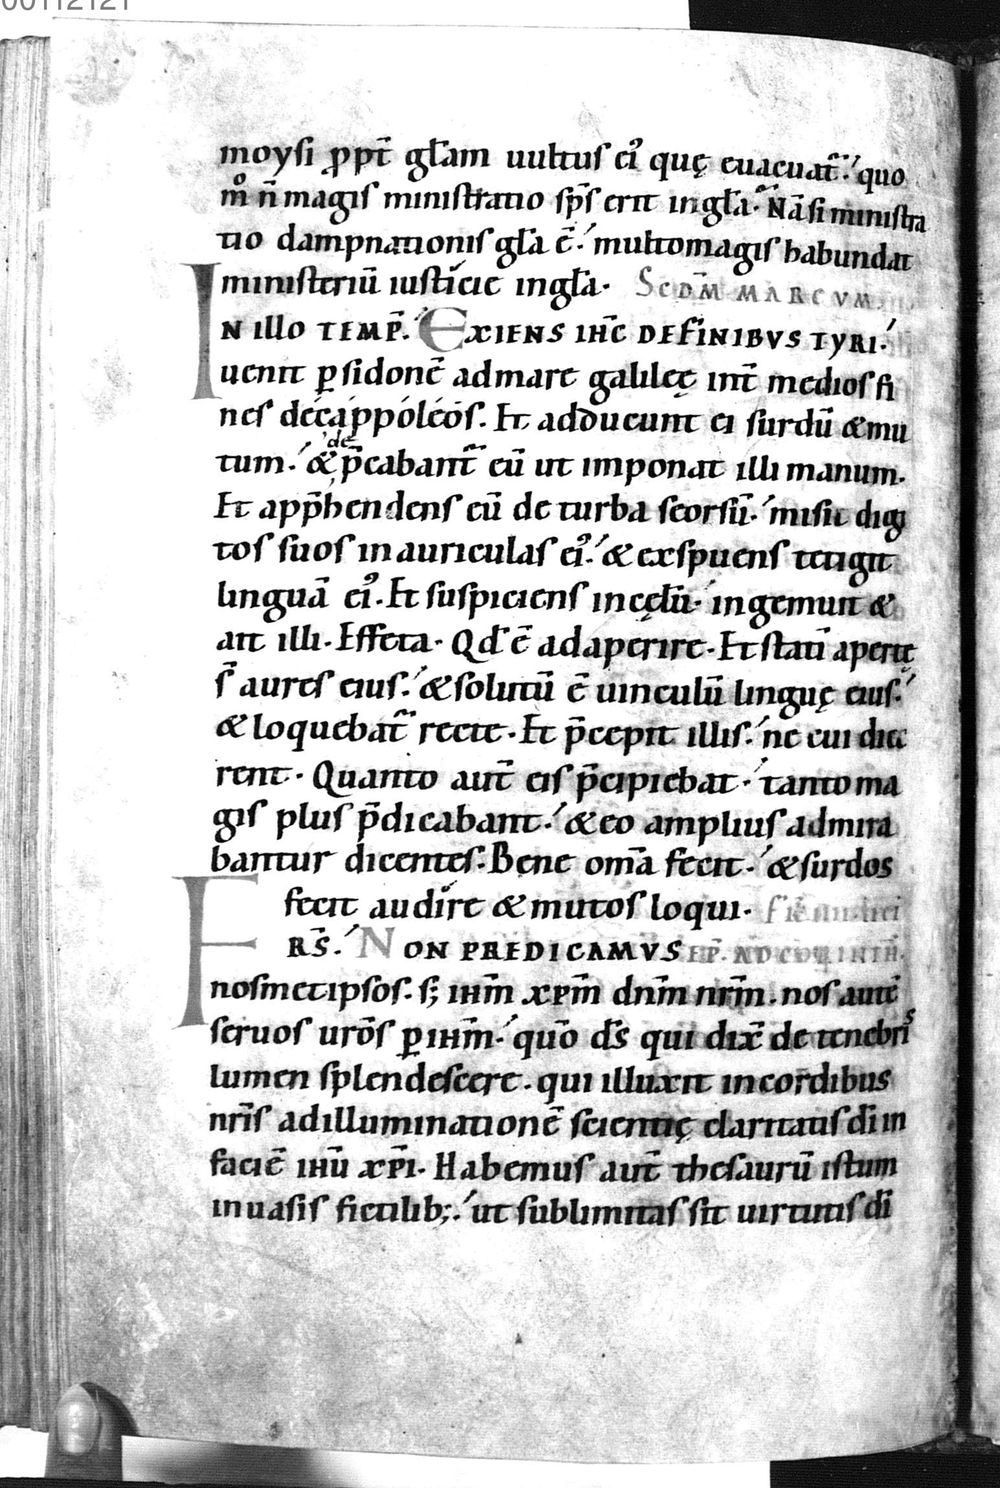 00112121
moysi ꝓpt̄ gl̄am uultus ei᷒ quę euacuat᷑.' quo
mͦ n̄ magis ministratio sp̄s erit in gl̄a. Nā si ministra
tio dampnationis gl̄a ē.' multo magis habundat
ministeriū iusticie in gl̄a. Scdm̄ MARCVM.
IN illo TEMP̄.' EXIENS IHC̄ DE FINIBVS TYRI.'
uenit ꝑ sidonē ad mare galileę int̄ medios fi
nes décappóleós. Et adducunt ei surdū & mu
tum.' & de p̄cabant᷑ eū ut imponat illi manum.
Et app̄hendens eū de turba seorsū.' misit digi
tos suos in auriculas ei᷒.' & exspuens tetigit
linguā ei᷒. Et suspiciens in cęlū.' ingemuit &
ait illi. Effeta. Qd̄ ē adaperire. Et statī apertę
s̄ aures eius.' & solutū ē uinculū linguę eius.'
& loquebat᷑ recte. Et p̄cepit illis.' ne cui dice
rent. Quanto aut̄ eis p̄cipiebat.' tanto ma
gis plus p̄dicabant.' & eo amplius admira
bantur dicentes. Bene om̄a fecit.' & surdos
fecit audire & mutos loqui.
FRS̄.' NON PREDICAMVS EP̄. AD CORINTH.
nosmetipsos. s; ihm̄ xpm̄ dnm̄ nrm̄. nos autē
seruos urōs ꝑ ihm̄.' quō ds̄ qui dix̄ de tenebris
lumen splendescere. qui illuxit in cordibus
nrīs ad illuminationē scientię claritatis dī in
faciē ihū xp̄i. Habemus aut̄ thesaurū istum
in uasis fictilib;.' ut sublimitas sit uirtutis dī